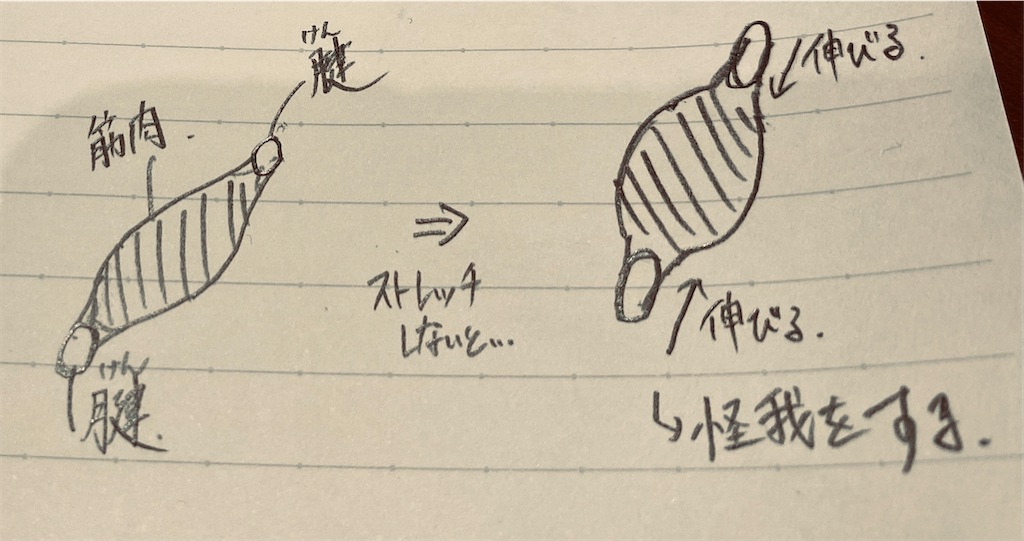 けん
腱
筋肉.
けん
腱.
⇒
ストレッチ
しないと...
伸びる.
伸びる.
↳怪我をする.